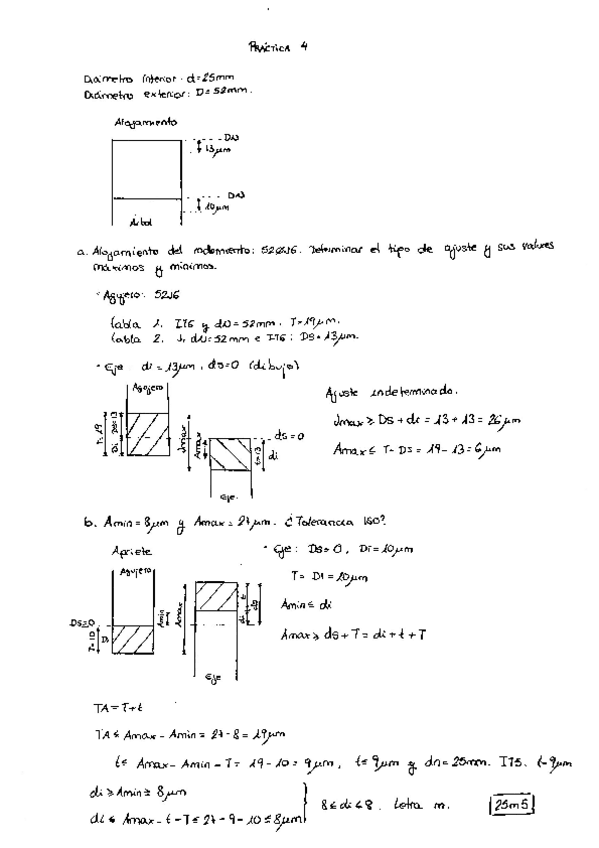 PRÁCTICA 4
Diámetro interior: d=25mm
Diámetro exterior: D=52mm.
Alojamiento
DN
13μm
DN
10μm
Árbol
a. Alojamiento del rodamiento: 52J6. Determinar el tipo de ajuste y sus valores
máximos y mínimos.
· Agujero: 52J6
Tabla 1. IT6 y dN=52mm. T=19μm.
Tabla 2. J, dN=52mm e IT6: DS=13μm.
· Eje di=13μm, ds=0 (dibujo)
Agujero
T=19
Di
Ds=13
Jmax
Amax
ds=0
t=13
di
Eje
Ajuste indeterminado.
Jmax ≥ DS + di = 13 + 13 = 26μm
Amax ≤ T - DS = 19 - 13 = 6μm
b. Amin = 8μm y Amax = 27μm. ¿Tolerancia ISO?
Apriete
Agujero
DS=0
T=10
Di
Amin
Amax
di
t
ds
Eje
· Eje: DS=0, Di=10μm
T = Di = 10μm
Amin ≤ di
Amax ≥ ds + T = di + t + T
TA = T + t
TA ≤ Amax - Amin = 27 - 8 = 19μm
t ≤ Amax - Amin - T = 19 - 10 = 9μm, t≤9μm y dn=25mm. IT5. t=9μm
di ≥ Amin ≥ 8μm
di ≤ Amax - t - T ≤ 27 - 9 - 10 ≤ 8μm
8 ≤ di ≤ 8. Letra m.
25m5